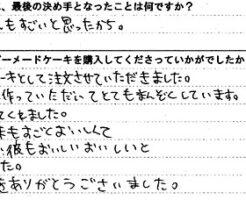 、最後の決め手となったことは何ですか？
もすごいと思ったから。
ーメードケーキを購入してくださっていかがでしたか
ーキとして注文させていただきました。
作っていただいてとてもまんぞくしています。
てくれました。
味もすごくおいしくて
、彼もおいしいおいしいと
た。
をありがとうございました。